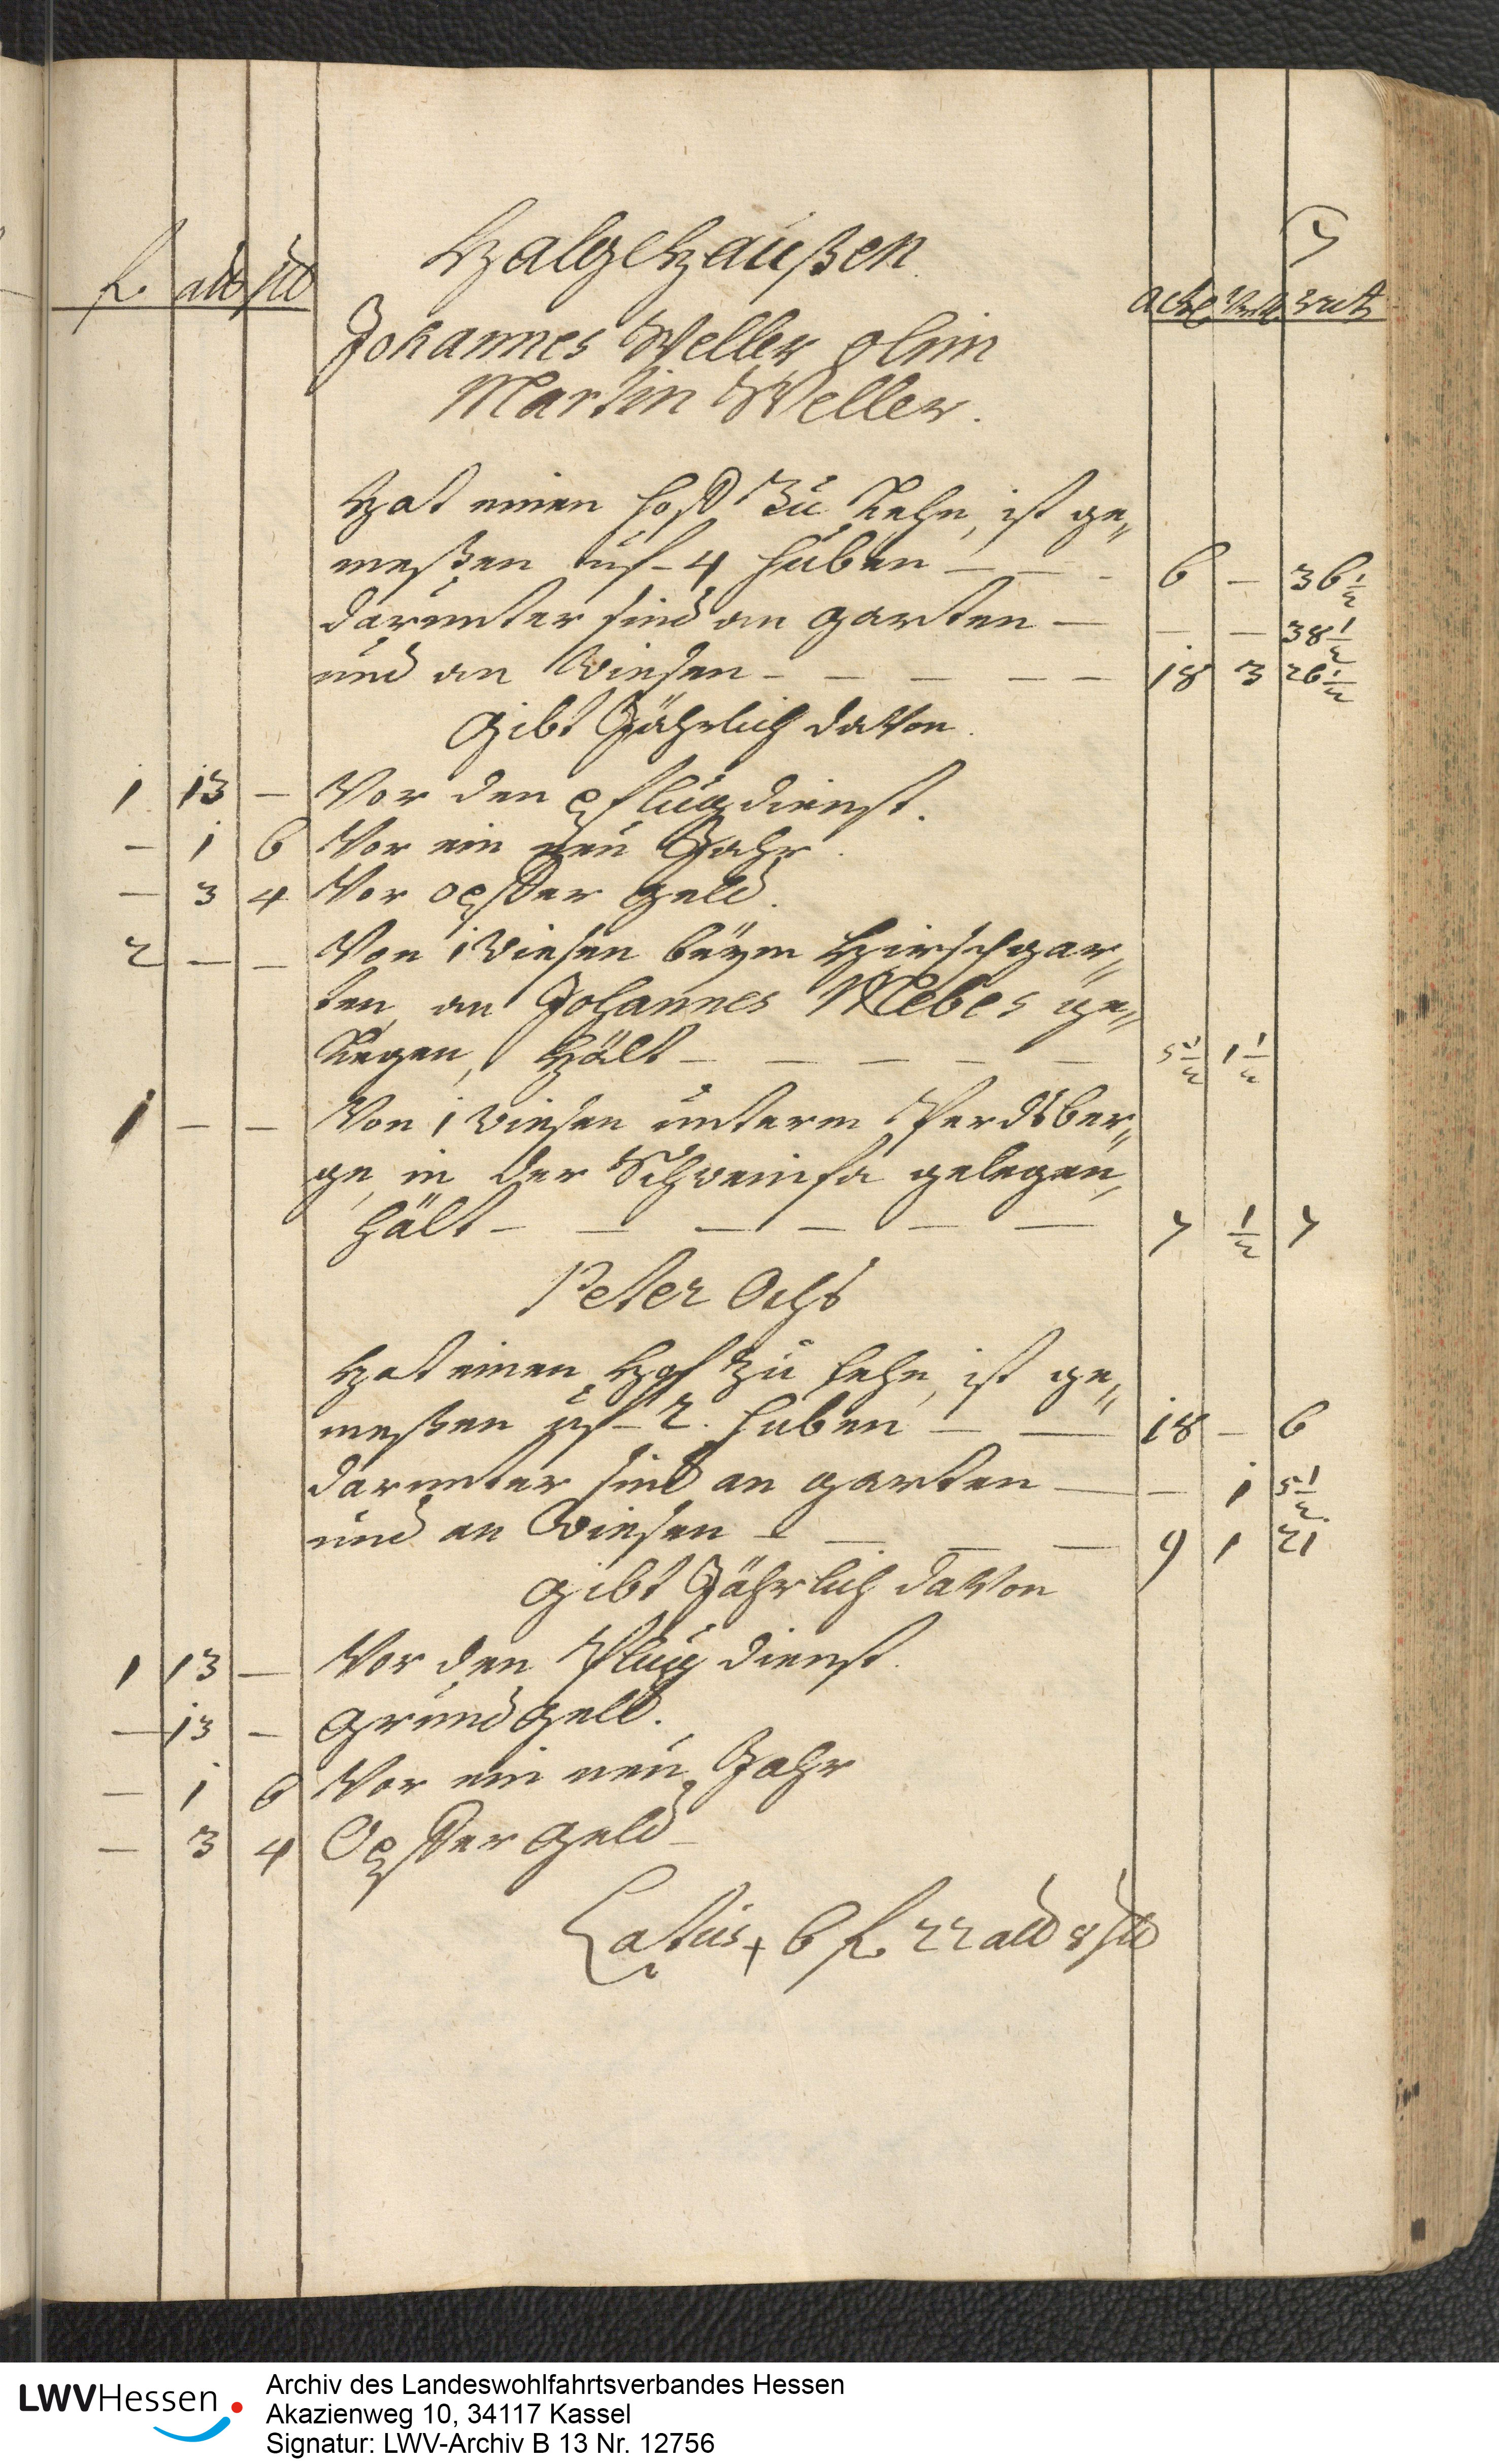 7
f. alb hlr
Halgehaußen
acker virtl ruth
Johannes Weller olim
Martin Weller.
Hat einen Hoff Zu Lehn, ist ge„
meßen uf 4 huben — — - 6 — 36 1/2
darunter sind an garten — — — 38 1/2
und an Wiesen - — — — — 18 3 26 1/2
Gibt Jährlich davon.
1 13 — Vor den pflugdienst.
— 1 6 Vor ein neu Jahr.
— 3 4 Vor opffer geld.
2 — — Von 1 Wiesen beym Hirschgar„
ten an Johannes Mebes ge„
legen, Hält — — — — — 5 1/2 1 1/2
1 — — Von 1 Wiesen unterm Pferdsber„
ge, in der Schweinfa gelegen,
hält — — — — — — 7 1/2 7
Peter Ochs
Hat einen Hof zu Lehn, ist ge„
meßen uf 2. huben — — 18 — 6
darunter sind an garten — — 1 5 1/2
und an Wiesen — — — — 9 1 21
Gibt Jährlich davon
1 13 — Vor den Pflug dienst.
— 13 — Grund geld.
— 1 6 Vor ein neu Jahr
— 3 4 Opffer geld
Latus + 6 f. 22 alb 8 hlr
LWVHessen
Archiv des Landeswohlfahrtsverbandes Hessen
Akazienweg 10, 34117 Kassel
Signatur: LWV-Archiv B 13 Nr. 12756